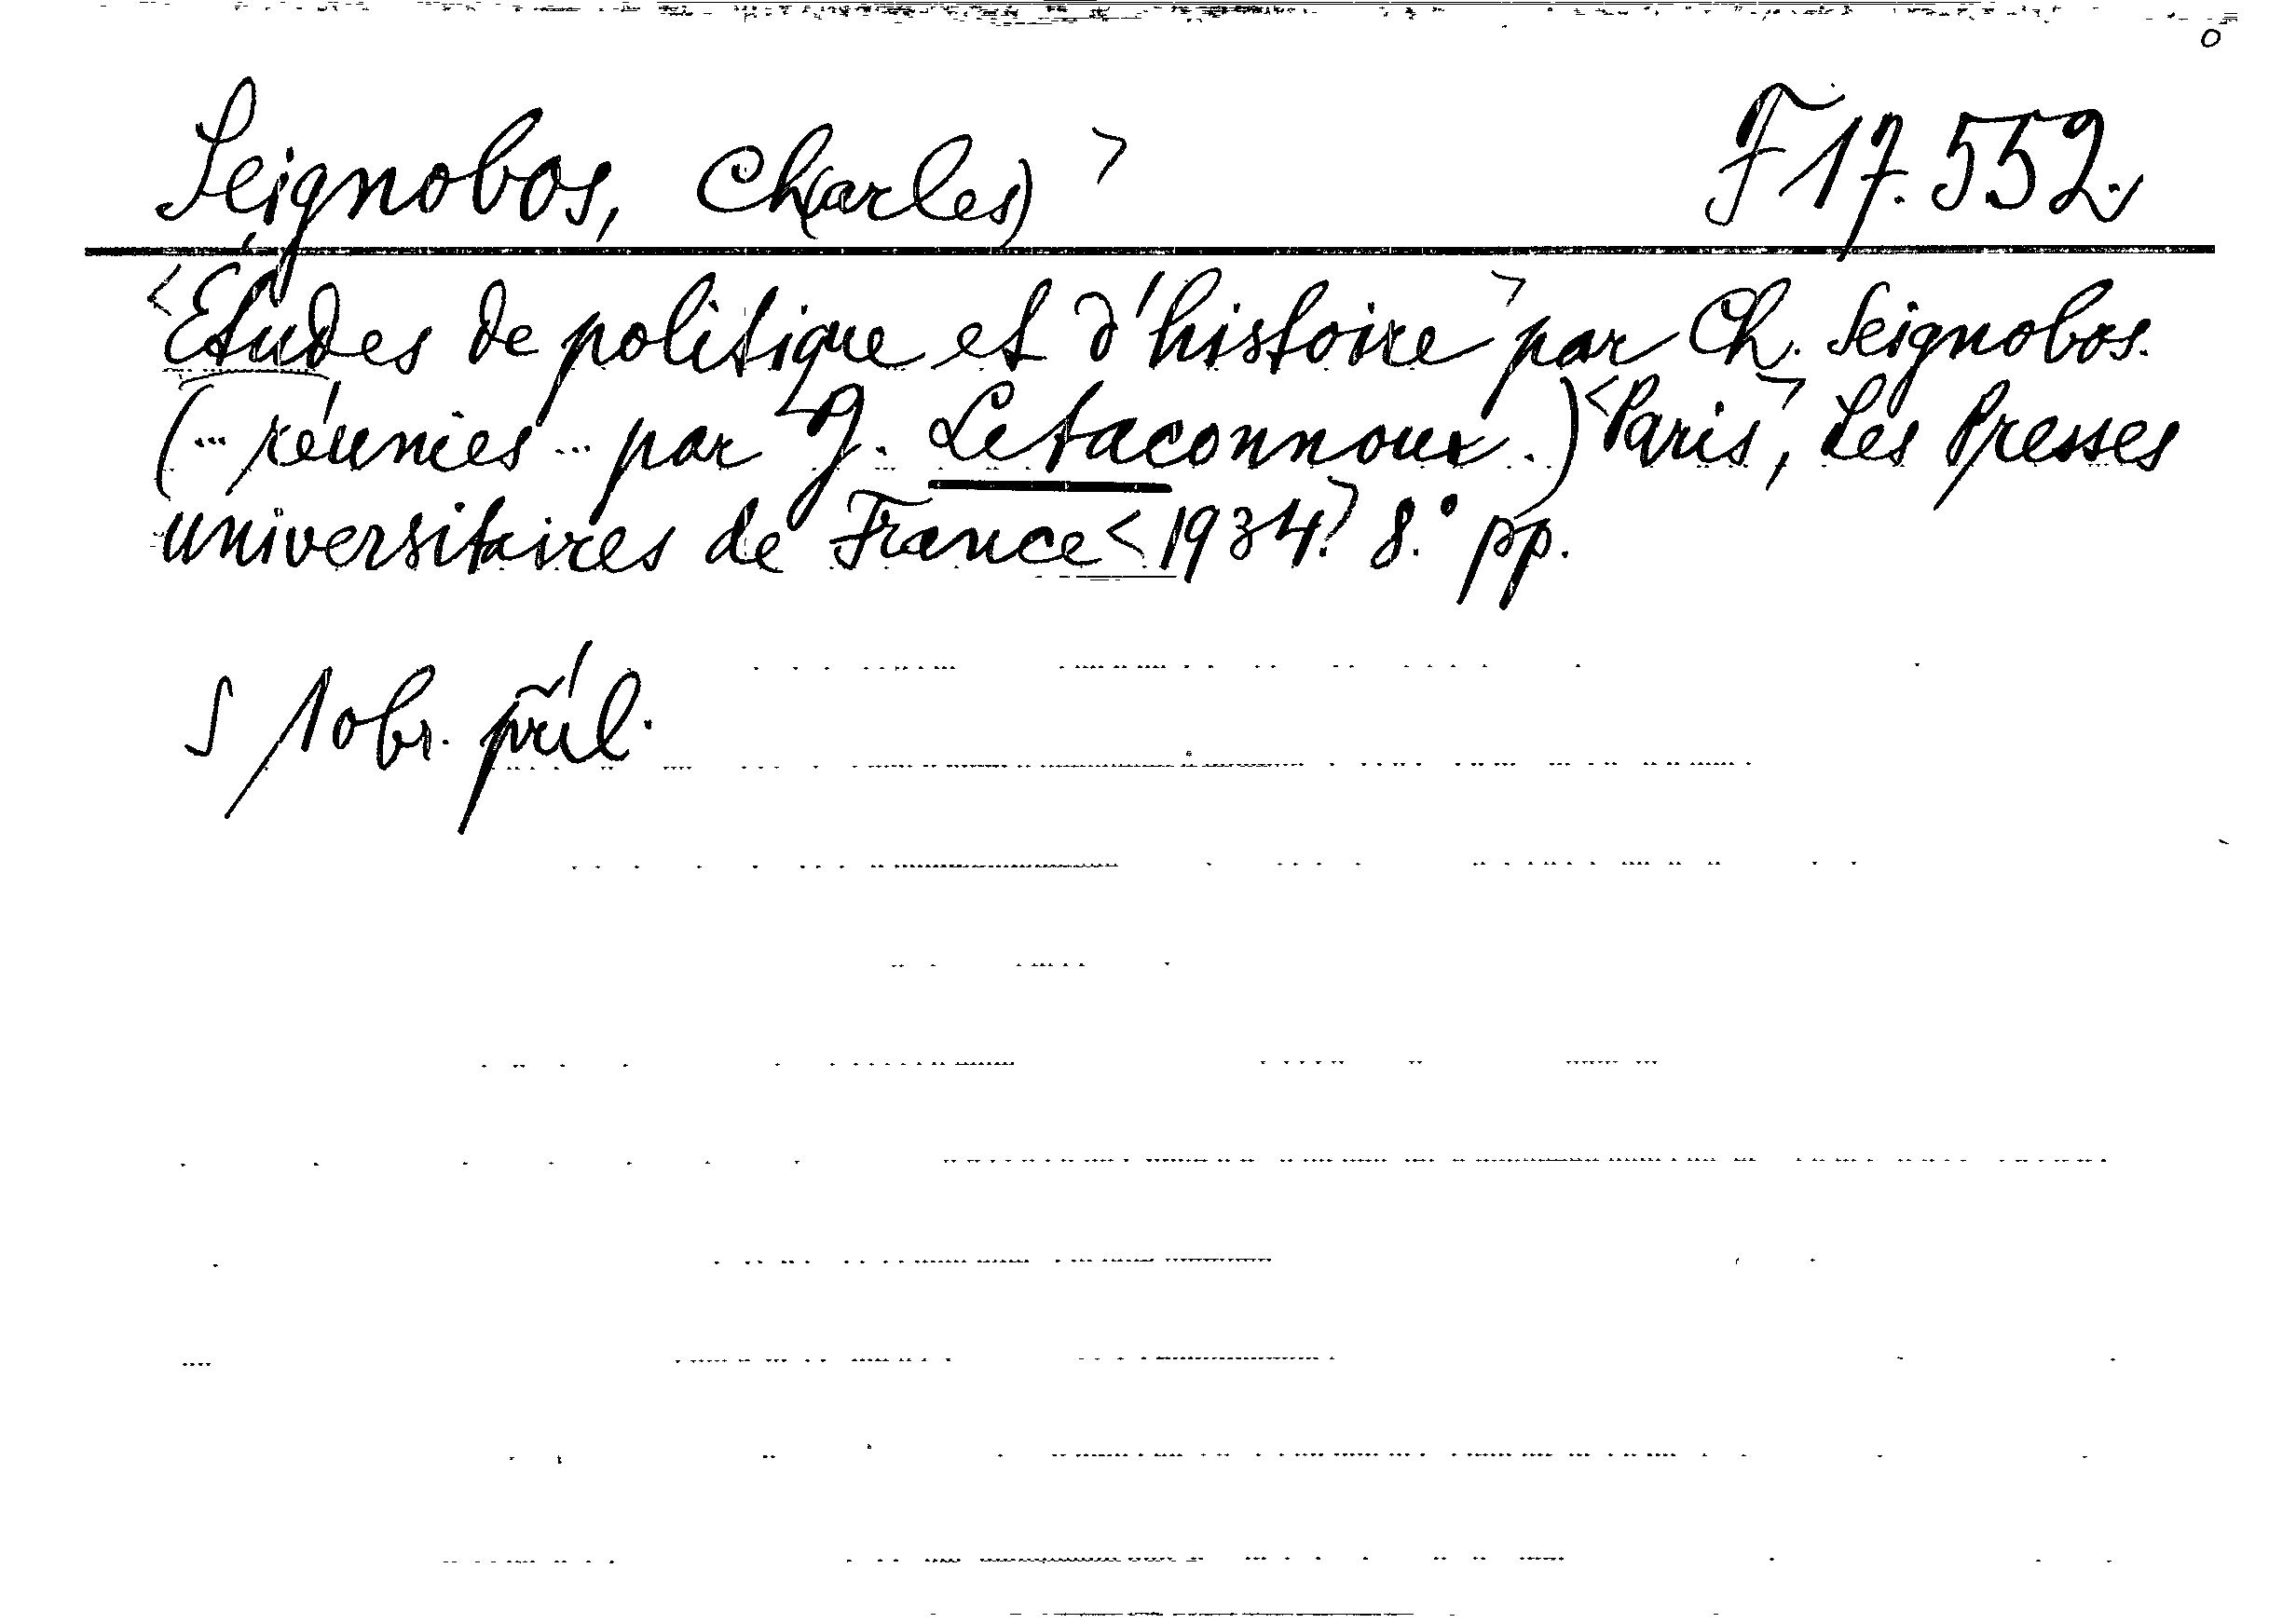 Seignobos, Ch(arles) > F 17.552.
<Études de politique et d'histoire> par Ch. Seignobos.
(... réunies ... par J. Letaconnoux.) <Paris>, Les Presses
universitaires de France <1934.> 8.° pp.
S 1 obr. příl.